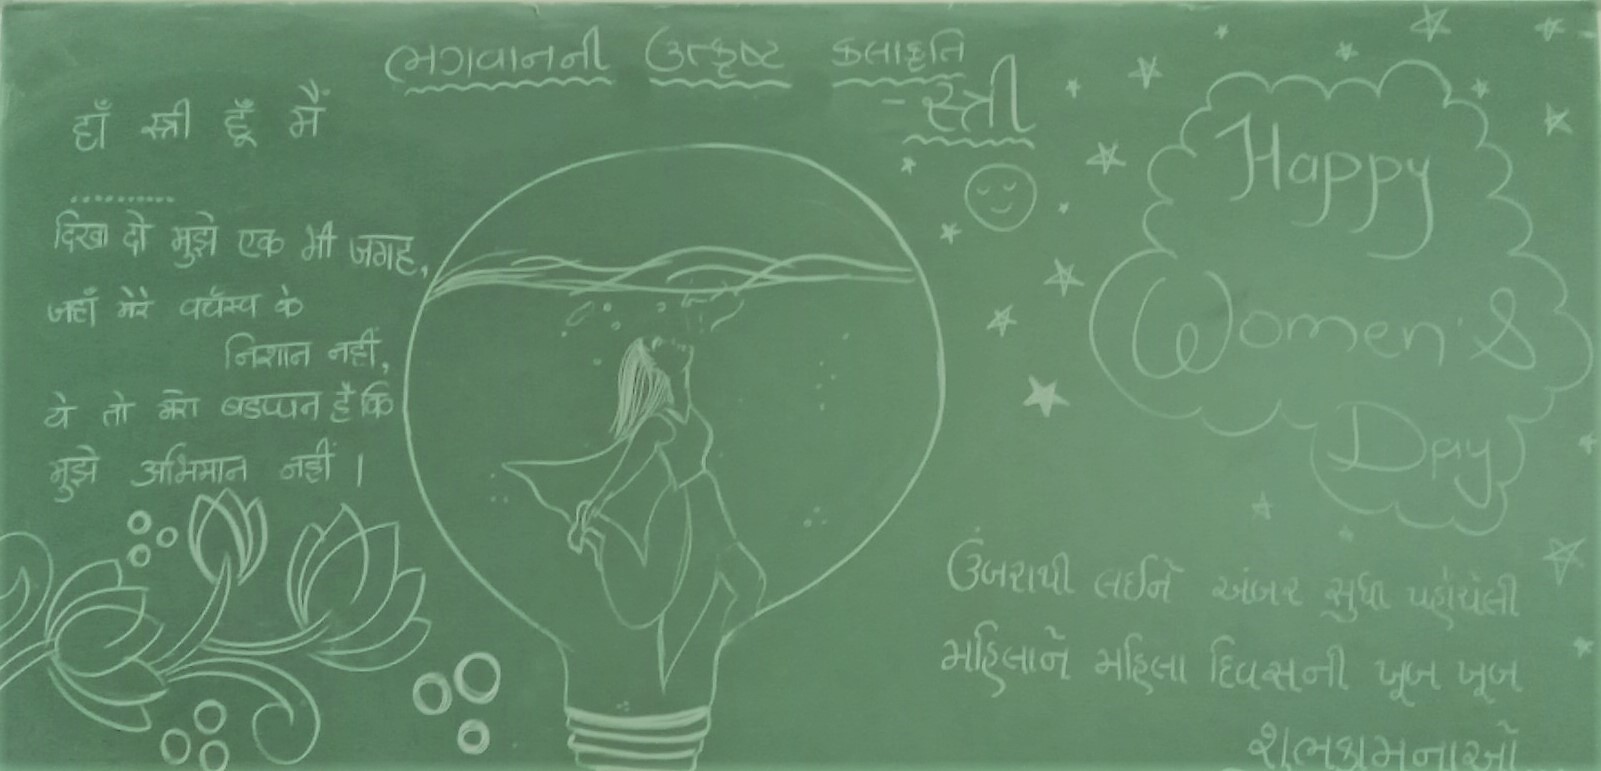 ભગવાનની ઉત્કૃષ્ટ કલાકૃતિ
- સ્ત્રી
हाँ स्त्री हूँ मैं
...........
दिखा दो मुझे एक भी जगह,
जहाँ मेरे वर्चस्व के
निशान नहीं,
ये तो मेरा बडप्पन है कि
मुझे अभिमान नहीं ।
Happy
Women's
Day
ઉંબરાથી લઈને અંબર સુધી પહોંચેલી
મહિલાને મહિલા દિવસની ખૂબ ખૂબ
શુભકામનાઓ